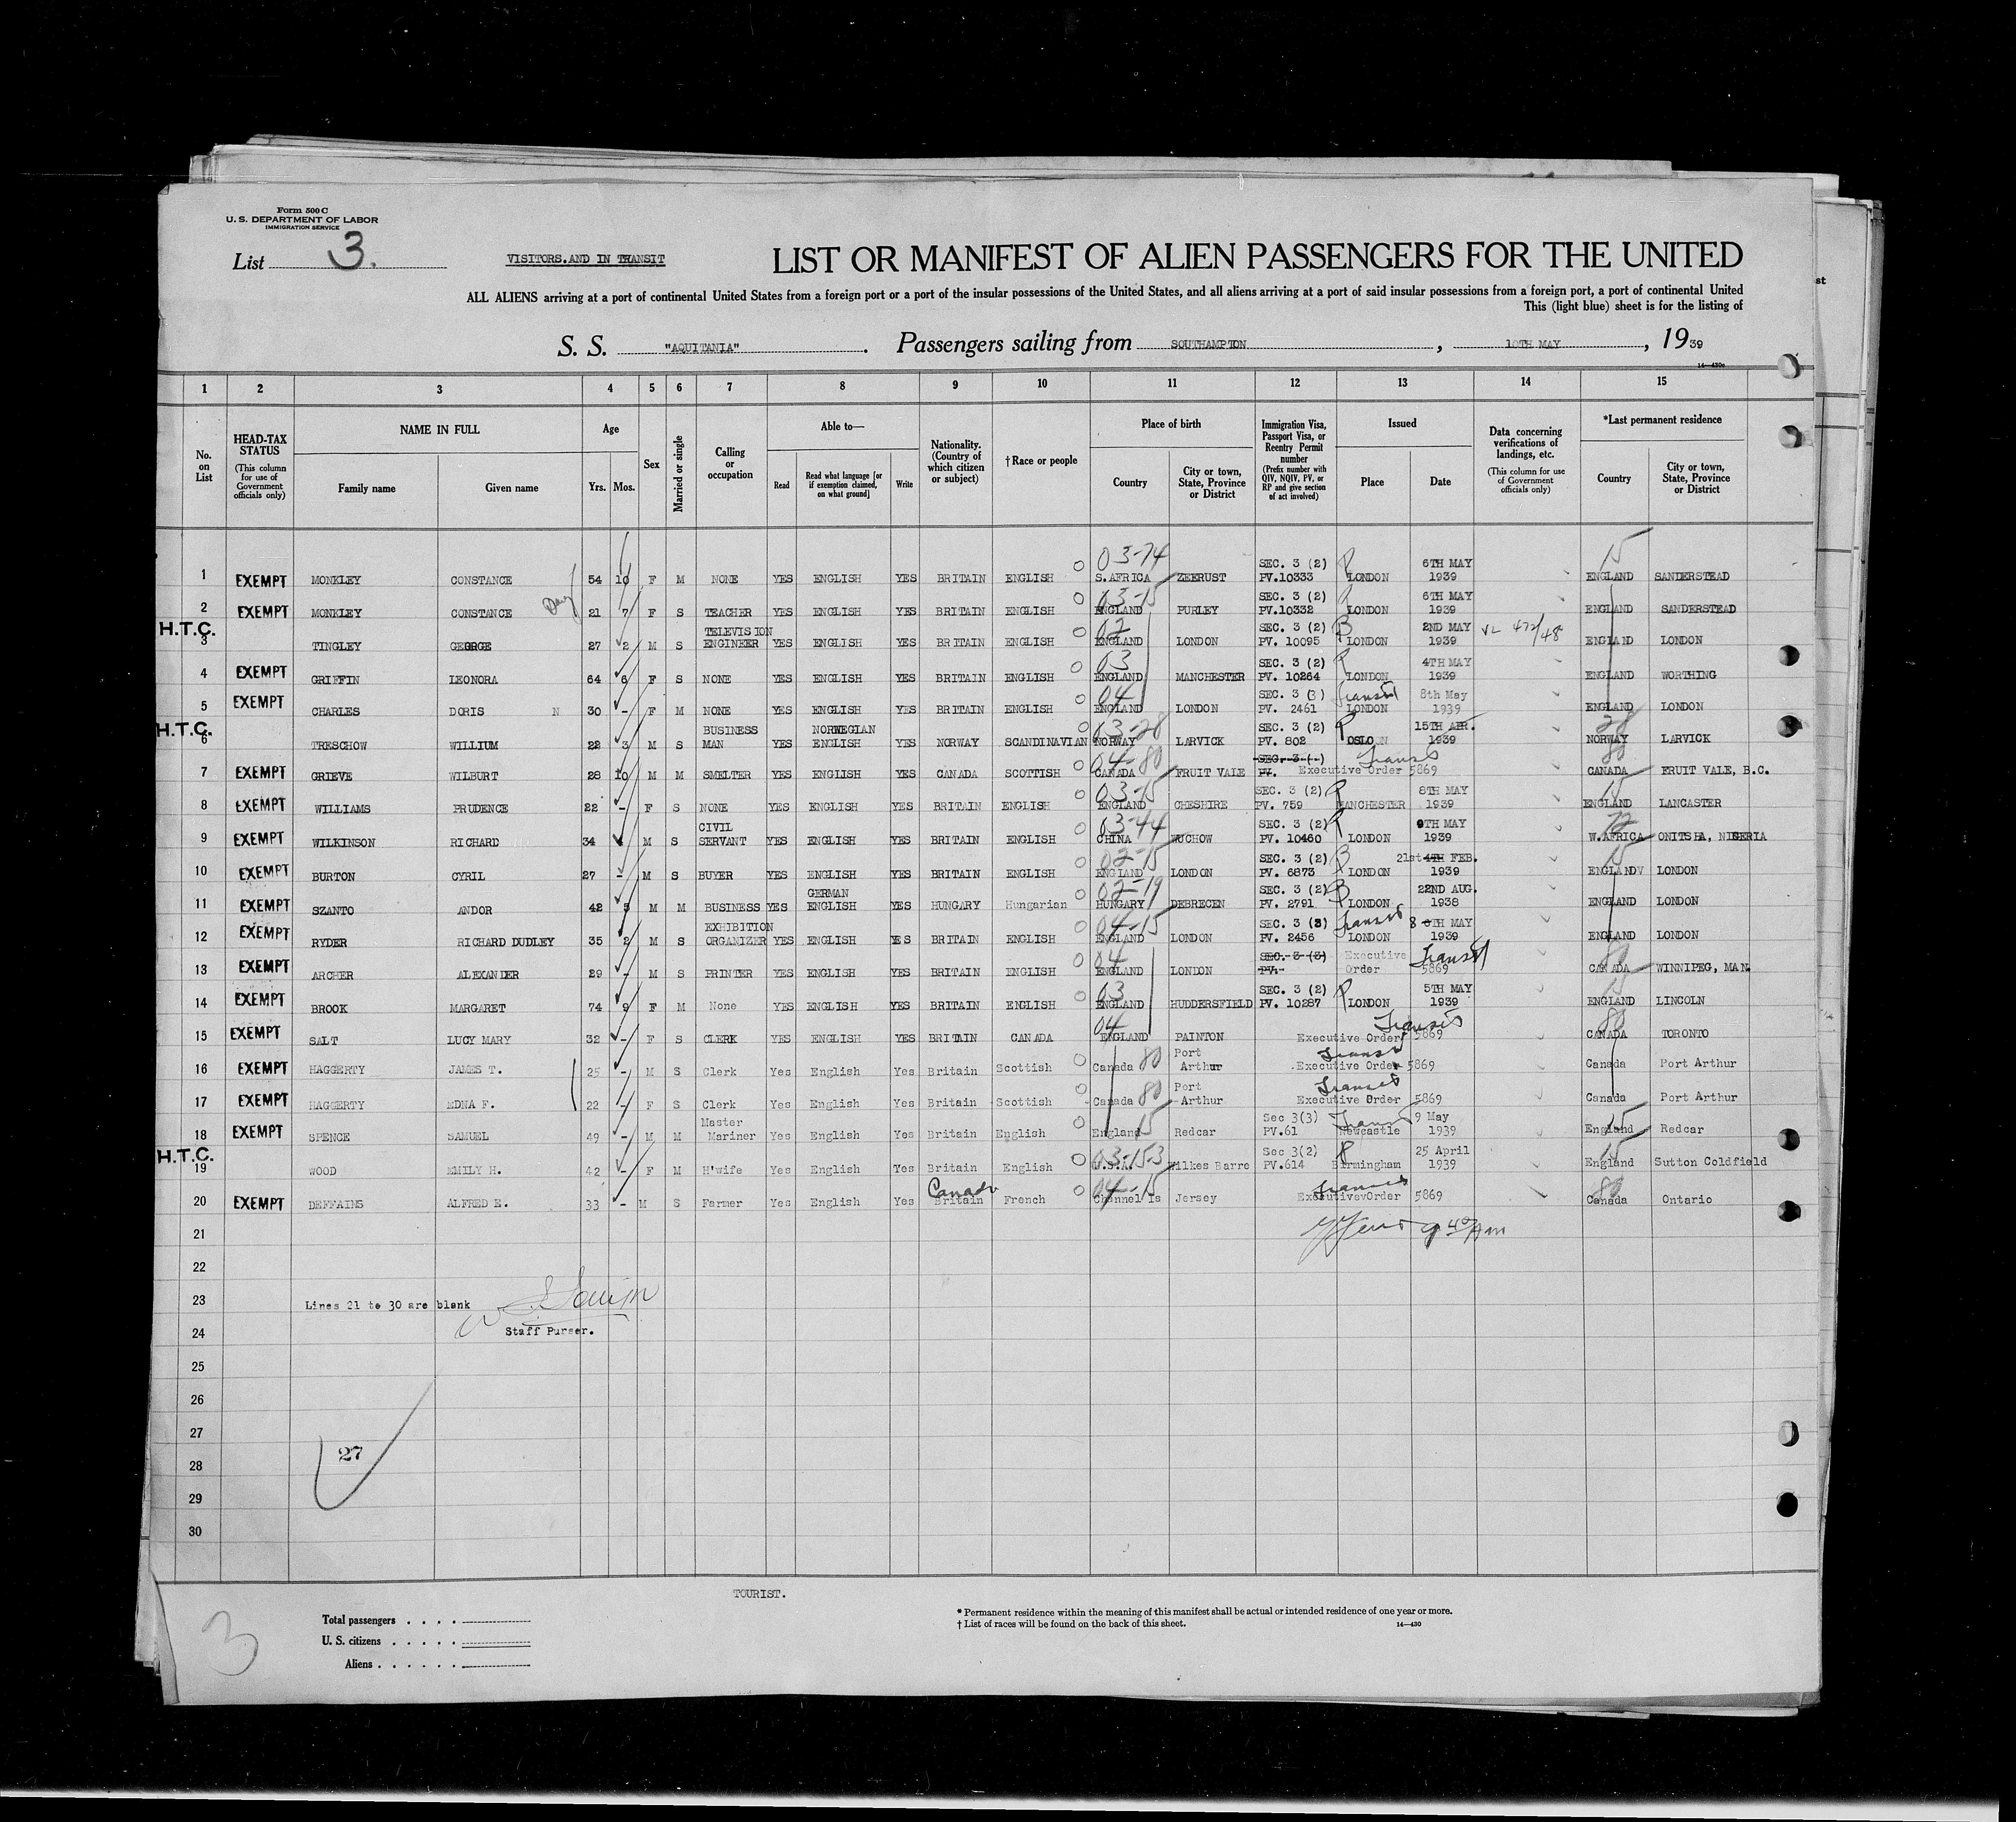 Form 500 C
U. S. DEPARTMENT OF LABOR
IMMIGRATION SERVICE
List 3.
VISITORS.AND IN TRANSIT
LIST OR MANIFEST OF ALIEN PASSENGERS FOR THE UNITED
ALL ALIENS arriving at a port of continental United States from a foreign port or a port of the insular possessions of the United States, and all aliens arriving at a port of said insular possessions from a foreign port, a port of continental United
This (light blue) sheet is for the listing of
S. S. "AQUITANIA" . Passengers sailing from SOUTHAMPTON , 10TH MAY , 1939
14—430c
1 2 3 4 5 6 7 8 9 10 11 12 13 14 15
No. on List
HEAD-TAX STATUS (This column for use of Government officials only)
NAME IN FULL Family name Given name
Age Yrs. Mos.
Sex
Married or single
Calling or occupation
Able to— Read Read what language [or if exemption claimed, on what ground] Write
Nationality. (Country of which citizen or subject)
†Race or people
Place of birth Country City or town, State, Province or District
Immigration Visa, Passport Visa, or Reentry Permit number (Prefix number with QIV, NQIV, PV, or RP and give section of act involved)
Issued Place Date
Data concerning verifications of landings, etc. (This column for use of Government officials only)
*Last permanent residence Country City or town, State, Province or District
1 EXEMPT MONKLEY CONSTANCE 54 10 F M NONE YES ENGLISH YES BRITAIN ENGLISH 03-74 S.AFRICA ZEERUST SEC. 3 (2) PV.10333 LONDON 6TH MAY 1939 15 ENGLAND SANDERSTEAD
2 EXEMPT MONKLEY CONSTANCE 21 7 F S TEACHER YES ENGLISH YES BRITAIN ENGLISH 03-15 ENGLAND PURLEY SEC. 3 (2) PV.10332 LONDON 6TH MAY 1939 ENGLAND SANDERSTEAD
H.T.C. 3 TINGLEY GEORGE 27 2 M S TELEVISION ENGINEER YES ENGLISH YES BRITAIN ENGLISH 02 ENGLAND LONDON SEC. 3 (2) PV. 10095 LONDON 2ND MAY 1939 VL 472/48 ENGLAND LONDON
4 EXEMPT GRIFFIN LEONORA 64 6 F S NONE YES ENGLISH YES BRITAIN ENGLISH 03 ENGLAND MANCHESTER SEC. 3 (2) PV. 10264 LONDON 4TH MAY 1939 ENGLAND WORTHING
5 EXEMPT CHARLES DORIS N 30 - F M NONE YES ENGLISH YES BRITAIN ENGLISH 04 ENGLAND LONDON SEC. 3 (3) PV. 2461 Transit LONDON 8th May 1939 ENGLAND LONDON
H.T.C. 6 TRESCHOW WILLIUM 22 3 M S BUSINESS MAN YES NORWEGIAN ENGLISH YES NORWAY SCANDINAVIAN 03-28 NORWAY LARVICK SEC. 3 (2) PV. 802 OSLO 15TH APR. 1939 28 NORWAY LARVICK
7 EXEMPT GRIEVE WILBURT 28 10 M M SMELTER YES ENGLISH YES CANADA SCOTTISH 04-80 CANADA FRUIT VALE SEC. 3 ( ) PV. Executive Order 5869 Transit 80 CANADA FRUIT VALE, B.C.
8 EXEMPT WILLIAMS PRUDENCE 22 - F S NONE YES ENGLISH YES BRITAIN ENGLISH 03-15 ENGLAND CHESHIRE SEC. 3 (2) PV. 759 MANCHESTER 8TH MAY 1939 15 ENGLAND LANCASTER
9 EXEMPT WILKINSON RICHARD 34 M S CIVIL SERVANT YES ENGLISH YES BRITAIN ENGLISH 03-44 CHINA WUCHOW SEC. 3 (2) PV. 10460 LONDON 9TH MAY 1939 72 W.AFRICA ONITSHA, NIGERIA
10 EXEMPT BURTON CYRIL 27 - M S BUYER YES ENGLISH YES BRITAIN ENGLISH 02-15 ENGLAND LONDON SEC. 3 (2) PV. 6873 LONDON 21st 4TH FEB. 1939 15 ENGLAND LONDON
11 EXEMPT SZANTO ANDOR 42 5 M M BUSINESS YES GERMAN ENGLISH YES HUNGARY Hungarian 02-19 HUNGARY DEBRECEN SEC. 3 (2) PV. 2791 LONDON 22ND AUG. 1938 ENGLAND LONDON
12 EXEMPT RYDER RICHARD DUDLEY 35 2 M S EXHIBITION ORGANIZER YES ENGLISH YES BRITAIN ENGLISH 04-15 ENGLAND LONDON SEC. 3 (3) PV. 2456 Transit LONDON 8 6TH MAY 1939 ENGLAND LONDON
13 EXEMPT ARCHER ALEXANDER 29 - M S PRINTER YES ENGLISH YES BRITAIN ENGLISH 04 ENGLAND LONDON SEC. 3 (3) PV. Executive Order 5869 Transit 80 CANADA WINNIPEG, MAN.
14 EXEMPT BROOK MARGARET 74 9 F M None YES ENGLISH YES BRITAIN ENGLISH 03 ENGLAND HUDDERSFIELD SEC. 3 (2) PV. 10287 LONDON 5TH MAY 1939 15 ENGLAND LINCOLN
15 EXEMPT SALT LUCY MARY 32 - F S CLERK YES ENGLISH YES BRITAIN CANADA 04 ENGLAND PAINTON Executive Order 5869 Transit 80 CANADA TORONTO
16 EXEMPT HAGGERTY JAMES T. 25 - M S Clerk Yes English Yes Britain Scottish Canada 80 Port Arthur Transit Executive Order 5869 Canada Port Arthur
17 EXEMPT HAGGERTY EDNA F. 22 - F S Clerk Yes English Yes Britain Scottish Canada 80 Port Arthur Transit Executive Order 5869 Canada Port Arthur
18 EXEMPT SPENCE SAMUEL 49 - M M Master Mariner Yes English Yes Britain English England 15 Redcar Sec 3(3) PV.61 Transit Newcastle 9 May 1939 15 England Redcar
H.T.C. 19 WOOD EMILY H. 42 - F M H'wife Yes English Yes Britain English 03-15-3 U.S.A. Wilkes Barre Sec 3(2) PV.614 Birmingham 25 April 1939 15 England Sutton Coldfield
20 EXEMPT DEFFAINS ALFRED E. 33 - M S Farmer Yes English Yes Canada Britain French 04-15 Channel Is Jersey Transit Executive Order 5869 80 Canada Ontario
21
22
23 Lines 21 to 30 are blank
24 Staff Purser.
25
26
27
27
28
29
30
TOURIST.
3
Total passengers . . . .
U. S. citizens . . . . .
Aliens . . . . . . .
* Permanent residence within the meaning of this manifest shall be actual or intended residence of one year or more.
† List of races will be found on the back of this sheet.
14—430